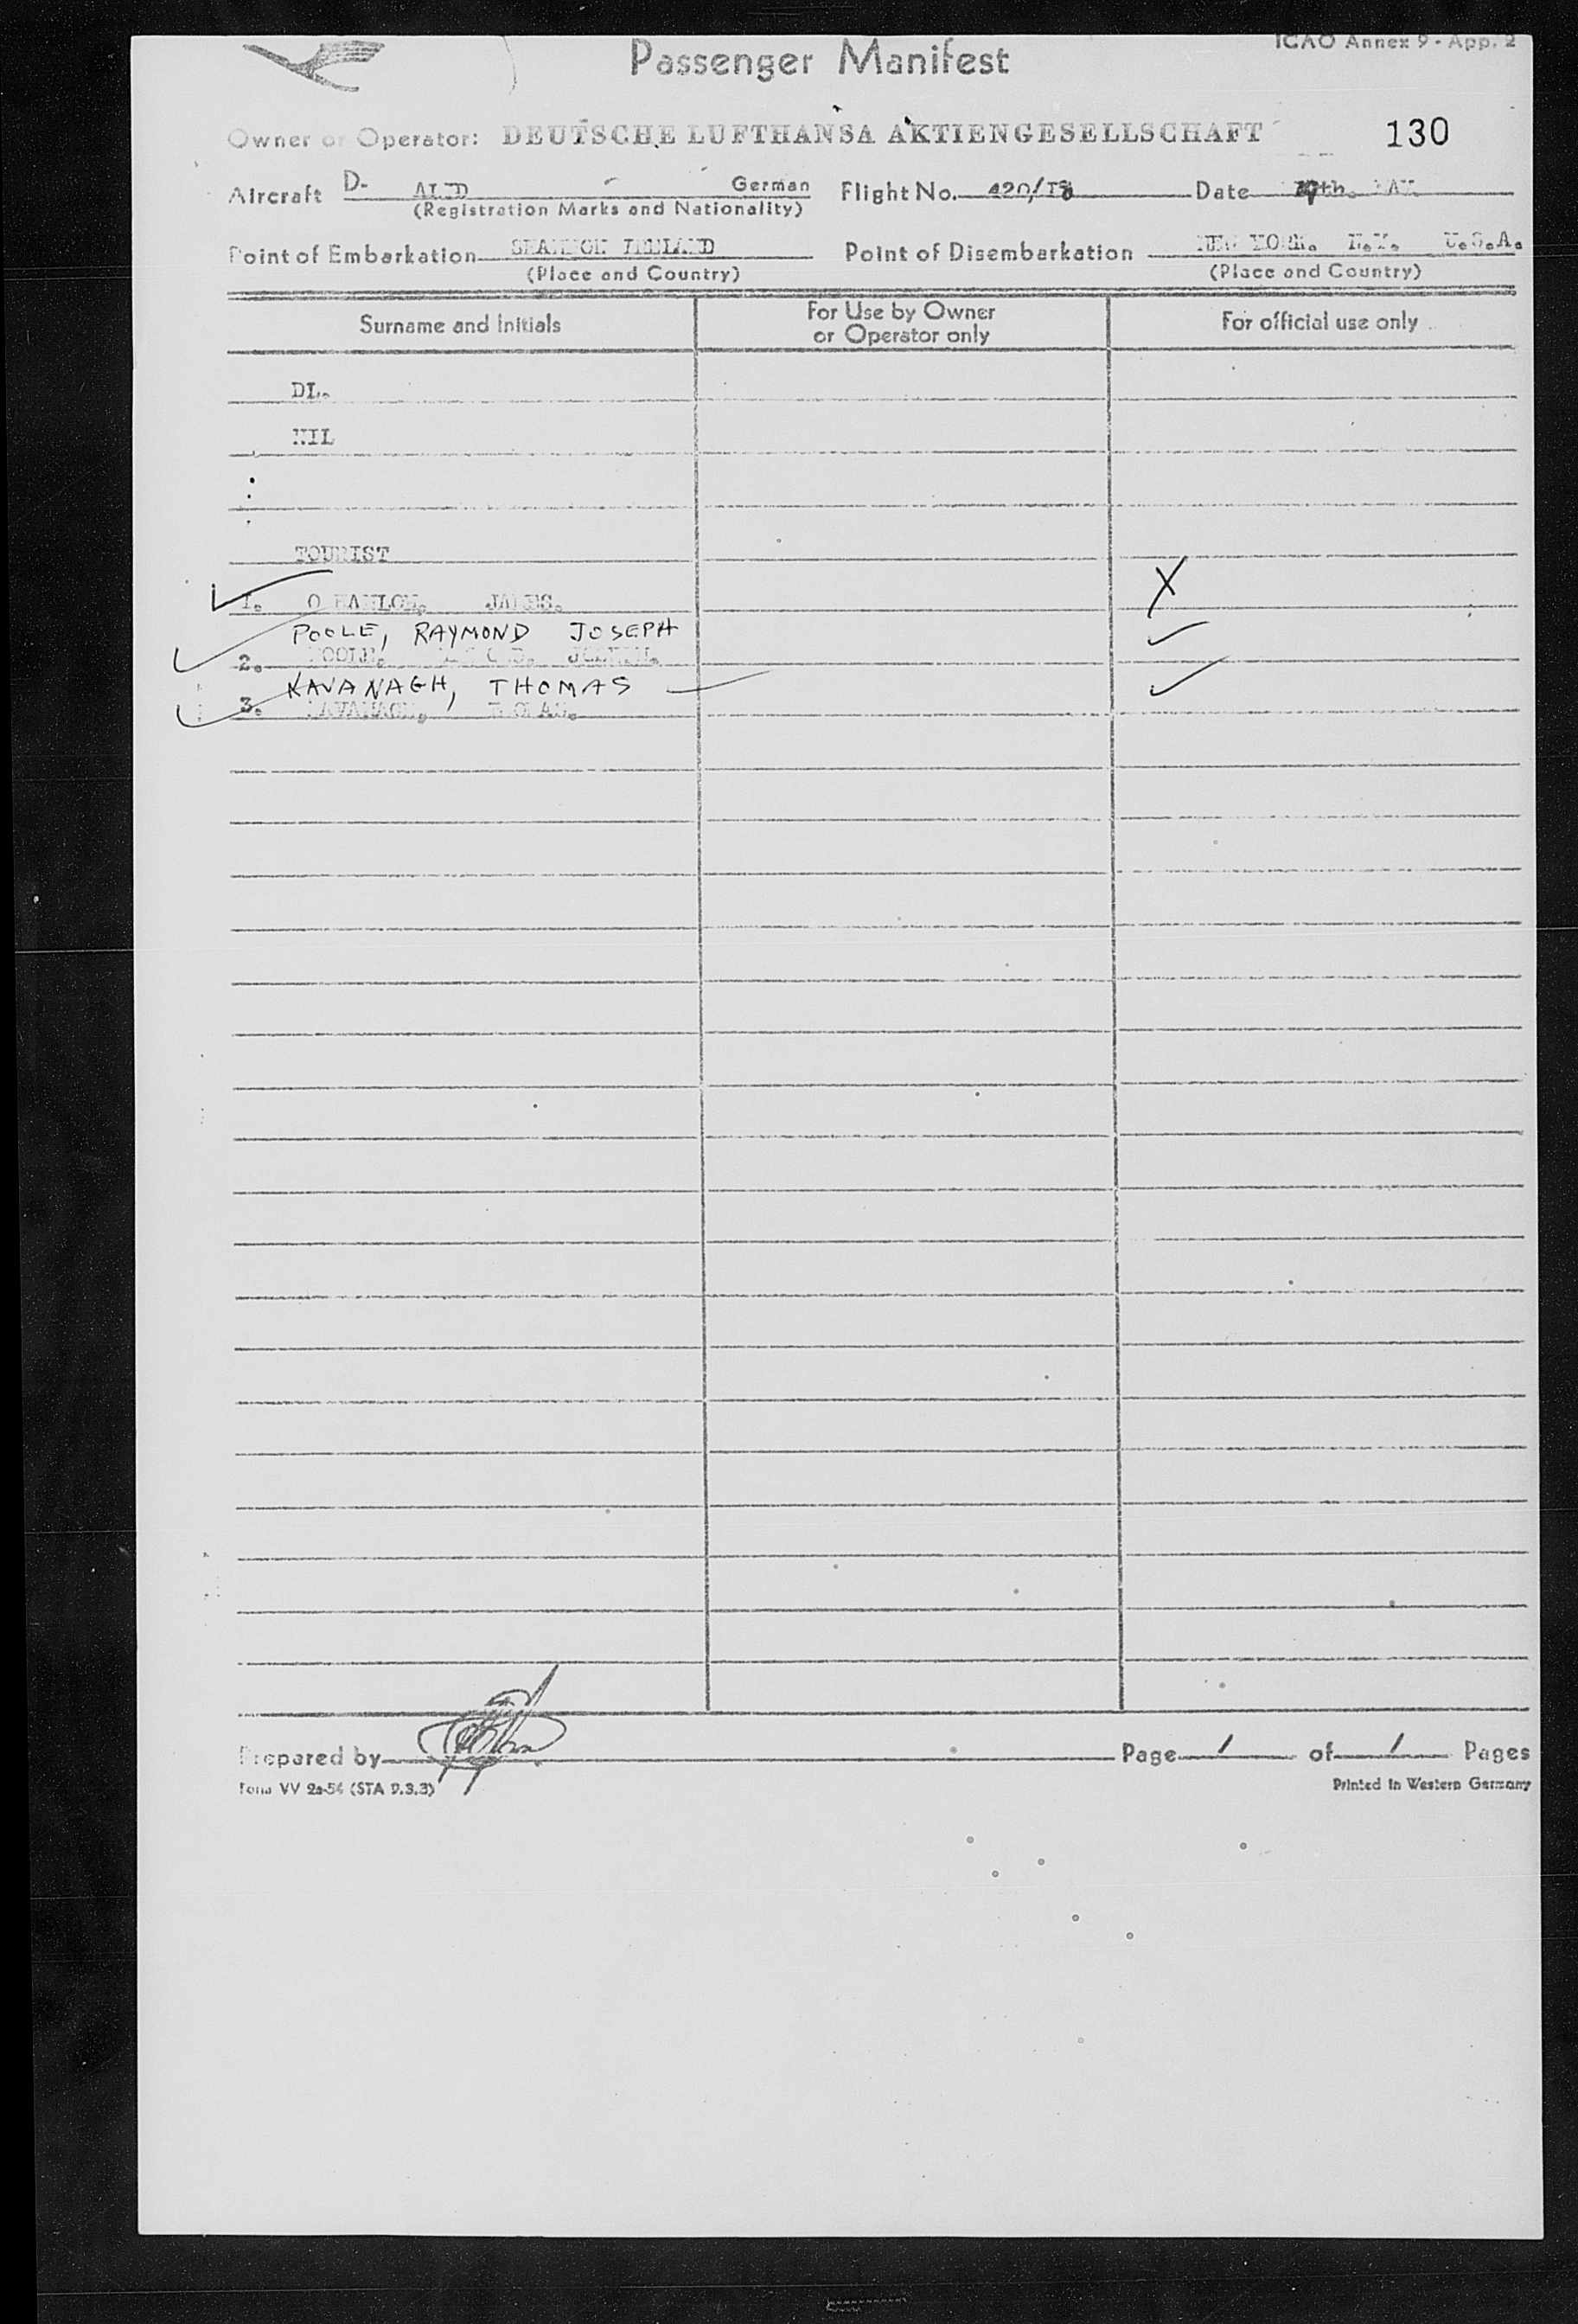 Passenger Manifest
ICAO Annex 9 - App. 2
Owner or Operator: DEUTSCHE LUFTHANSA AKTIENGESELLSCHAFT 130
Aircraft D- German Flight No. 420/18 Date MAY
(Registration Marks and Nationality)
Point of Embarkation SHANNON IRELAND Point of Disembarkation NEW YORK. N.Y. U.S.A.
(Place and Country) (Place and Country)
Surname and Initials For Use by Owner or Operator only For official use only
DL.
NIL
TOURIST
1. O HANLON. JAMES. X
POOLE, RAYMOND JOSEPH
2. POOLE.
KAVANAGH, THOMAS
3. KAVANAGH.
Prepared by Page 1 of 1 Pages
Form VV 2a-54 (STA 9.3.3) Printed in Western Germany